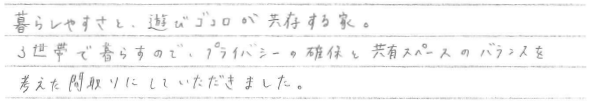 暮らしやすさと、遊びゴコロが共存する家。
3世帯で暮らすので、プライバシーの確保と共有スペースのバランスを
考えた間取りにしていただきました。